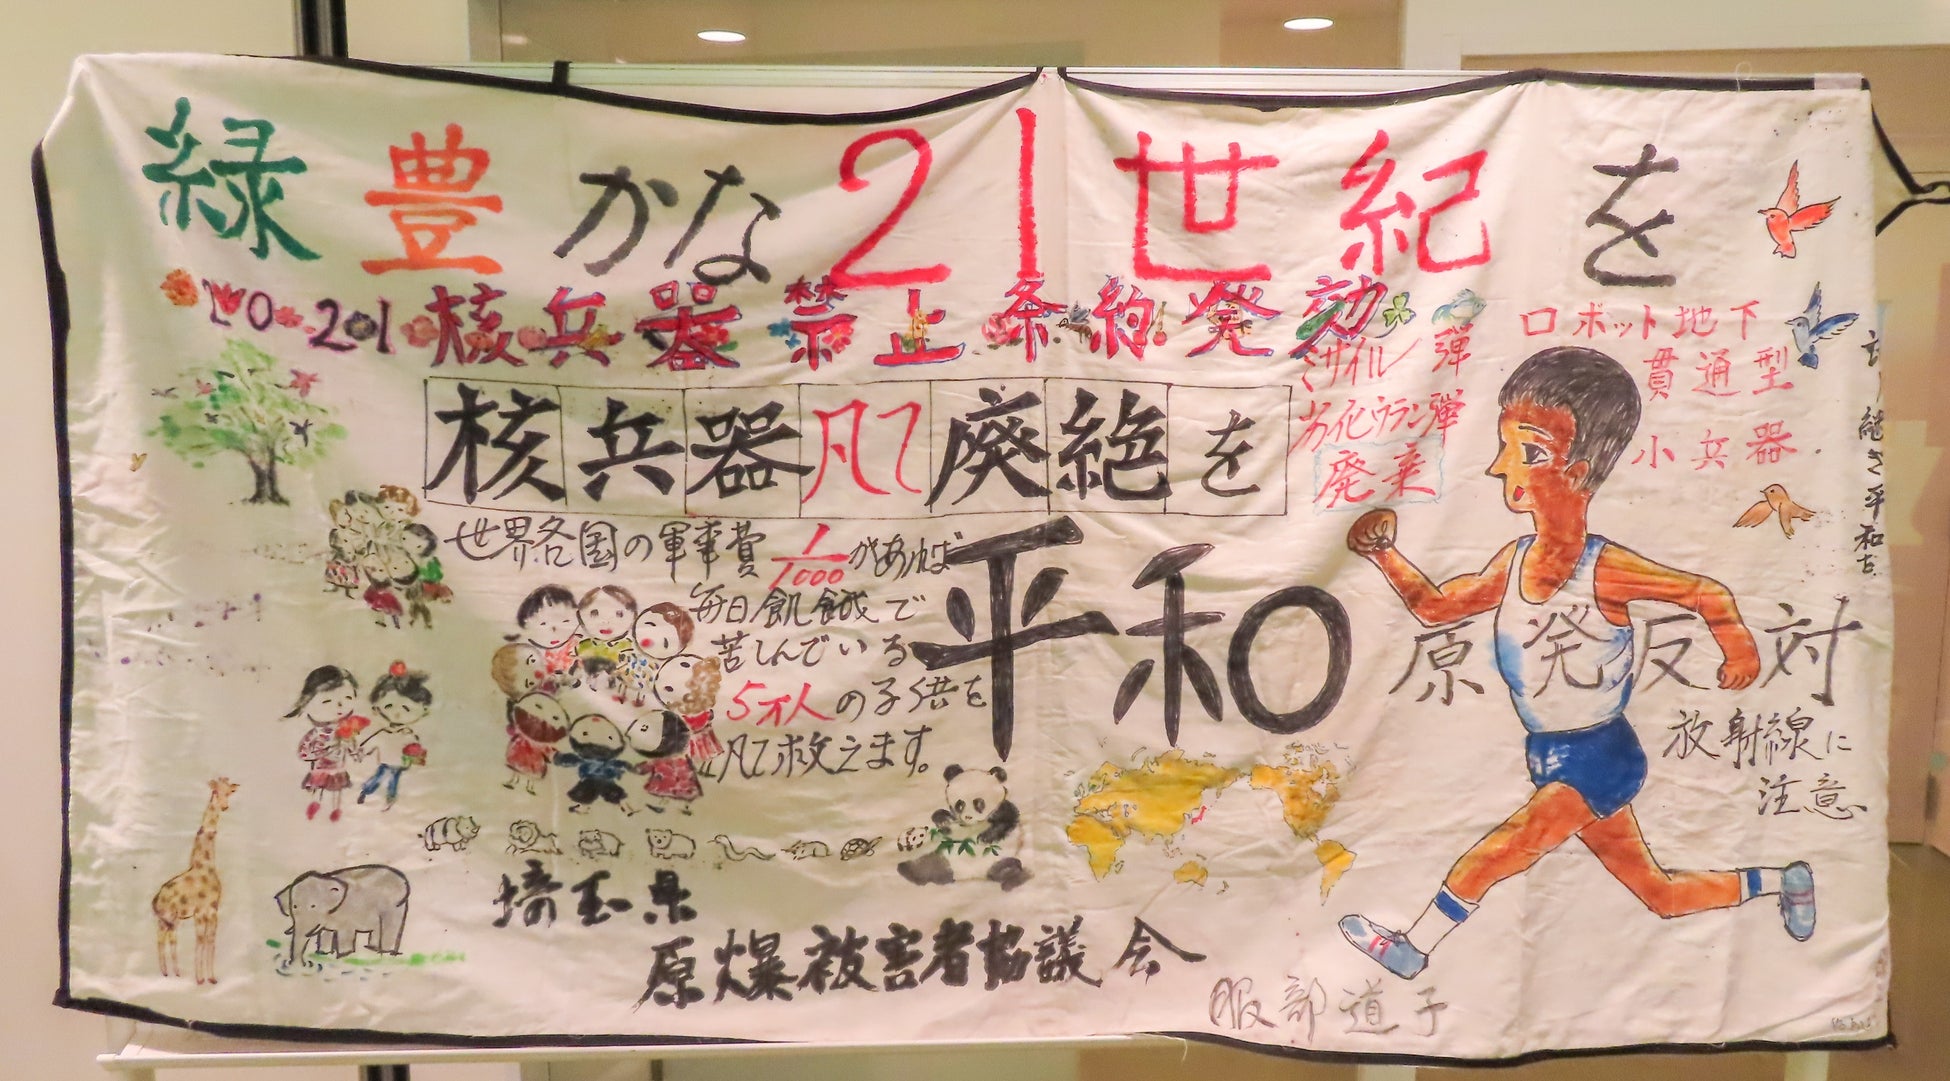 緑豊かな21世紀を
核兵器禁止条約発効
核兵器凡て廃絶を
ミサイル弾
劣化ウラン弾
廃棄
ロボット地下
貫通型
小兵器
世界各国の軍事費1/1000があれば
毎日飢餓で
苦しんでいる
5万人の子供を
凡て救えます。
平和
原発反対
放射線に
注意
継ぎ平和を
埼玉県
原爆被害者協議会
服部道子